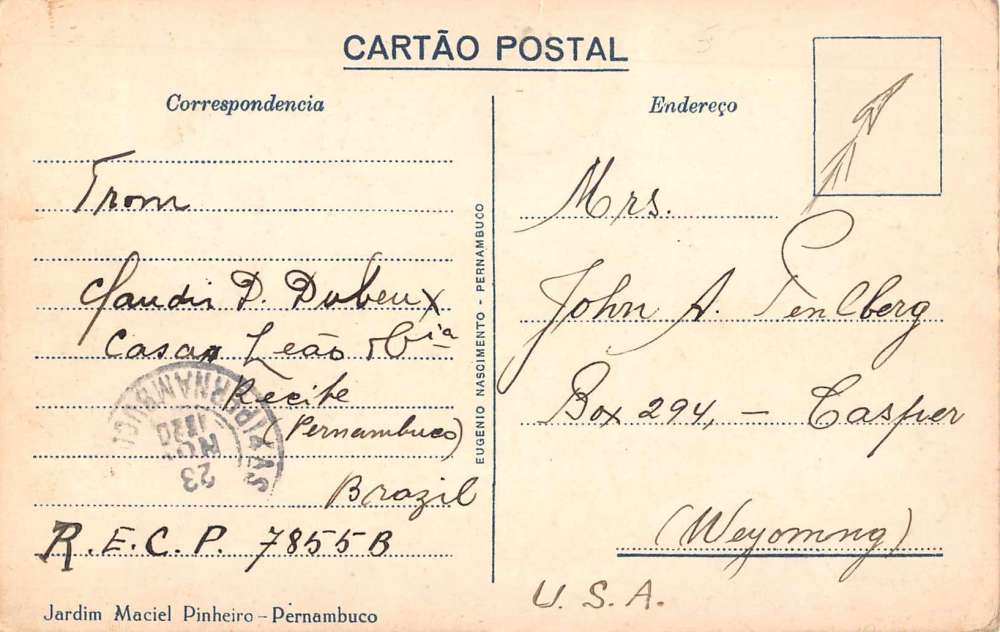 CARTÃO POSTAL
Correspondencia
From
Claudio D. Dubeux
Casa Leão & Cia
Recife
(Pernambuco)
Brazil
R.E.C.P. 7855B
Jardim Maciel Pinheiro - Pernambuco
EUGENIO NASCIMENTO - PERNAMBUCO
Endereço
Mrs.
John A.
Box 294, - Casper
(Weyomng)
U.S.A.
23